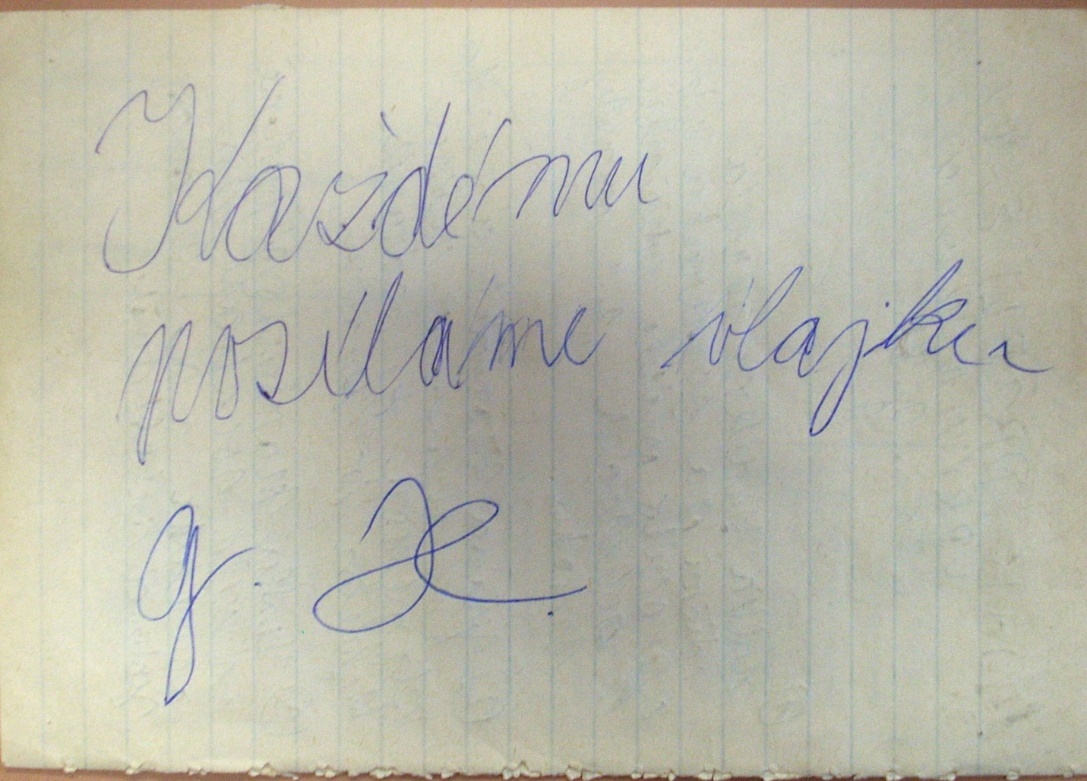 Každému
posíláme vlajku